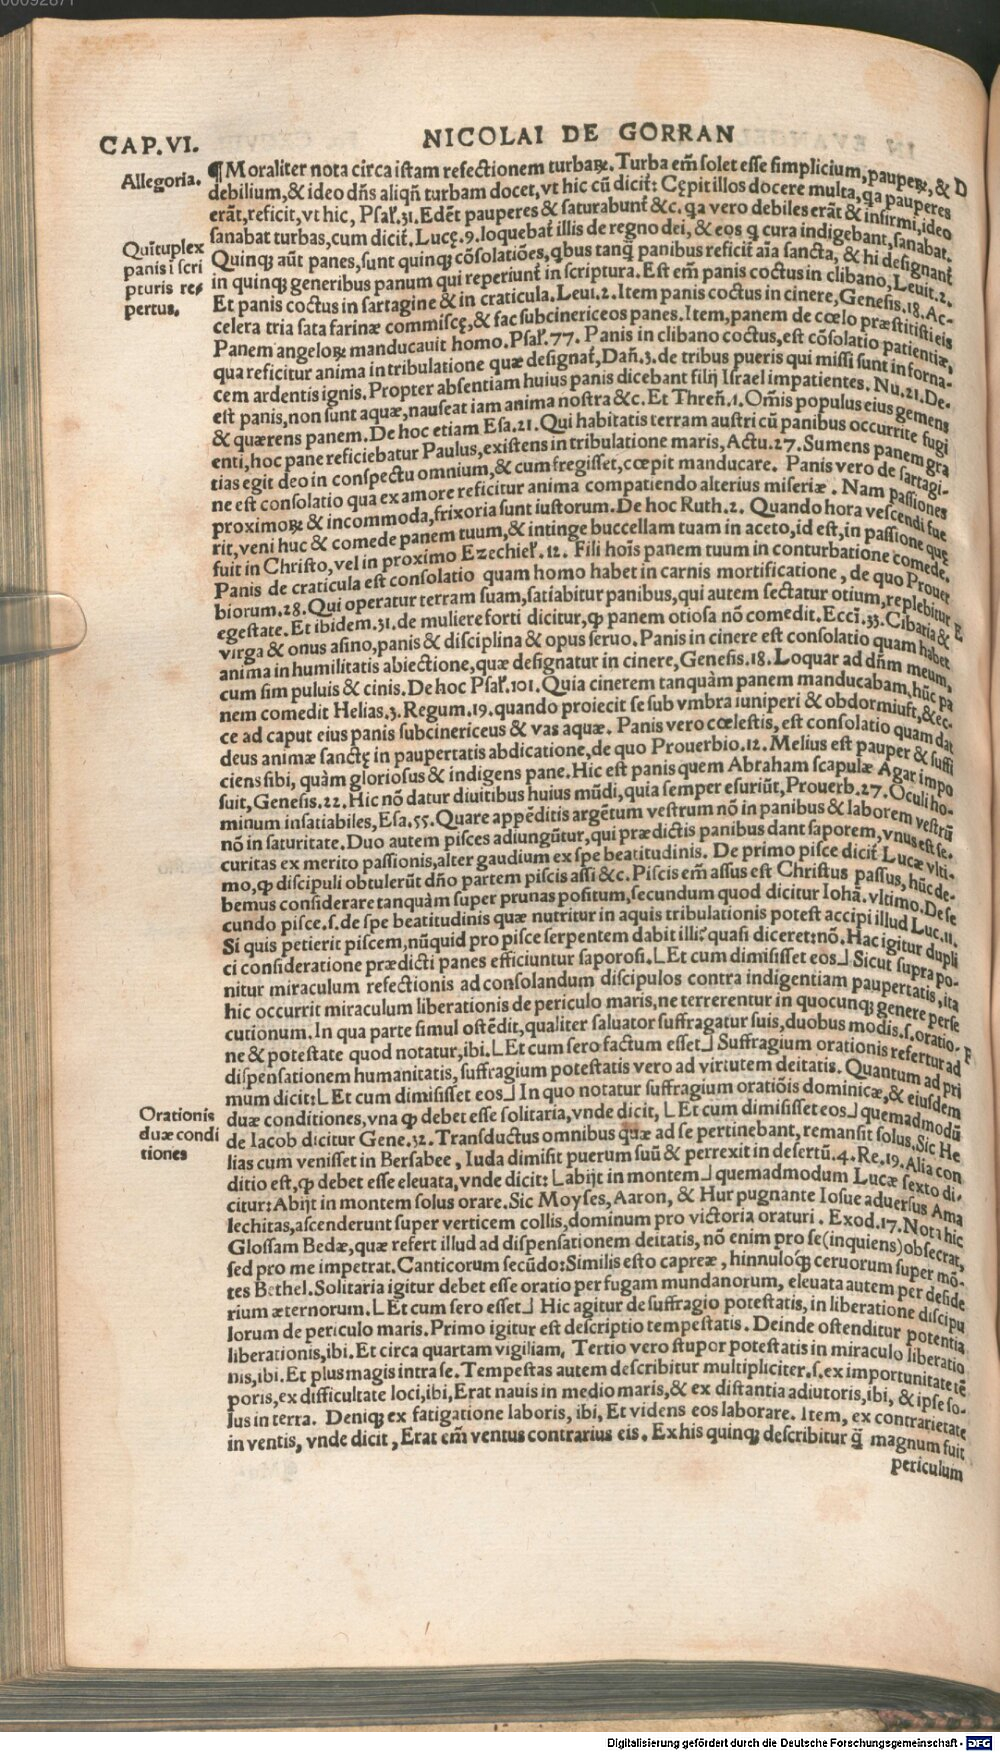 00092871
CAP.VI.
NICOLAI DE GORRAN
Allegoria.
¶Moraliter nota circa iſtam refectionem turbaꝝ. Turba em̃ ſolet eſſe ſimplicium, pauperꝝ, & D
debilium, & ideo dñs aliqñ turbam docet, vt hic cũ dicit̃: Cępit illos docere multa, qa pauperes
erãt, reficit, vt hic, Pſal̃. 31. Edẽt pauperes & ſaturabunt̃ &c. qa vero debiles erãt & infirmi, ideo
ſanabat turbas, cum dicit̃. Lucę. 9. loquebat̃ illis de regno dei, & eos q̃ cura indigebant, ſanabat.
Quĩtuplex
panis i ſcri
pturis re⸗
pertus.
Quinqꝫ aũt panes, ſunt quinqꝫ cõſolatiões, qbus tanq̃ panibus reficit̃ aĩa ſancta, & hi deſignant̃
in quinqꝫ generibus panum qui reperiunt̃ in ſcriptura. Eſt em̃ panis coctus in clibano, Leuit. 2.
Et panis coctus in ſartagine & in craticula. Leui. 2. Item panis coctus in cinere, Geneſis. 18. Ac-
celera tria ſata farinæ commiſcę, & fac ſubcinericeos panes. Item, panem de cœlo præſtitiſti eis
Panem angeloꝝ manducauit homo. Pſal̃. 77. Panis in clibano coctus, eſt cõſolatio patientiæ,
qua reficitur anima in tribulatione quæ deſignat̃, Dañ. 3. de tribus pueris qui miſſi ſunt in forna-
cem ardentis ignis. Propter abſentiam huius panis dicebant filij Iſrael impatientes. Nu. 21. De-
eſt panis, non ſunt aquæ, nauſeat iam anima noſtra &c. Et Threñ. 1. Om̃is populus eius gemens
& quærens panem. De hoc etiam Eſa. 21. Qui habitatis terram auſtri cũ panibus occurrite fugi
enti, hoc pane reficiebatur Paulus, exiſtens in tribulatione maris, Actu. 27. Sumens panem gra
tias egit deo in conſpectu omnium, & cum fregiſſet, cœpit manducare. Panis vero de ſartagi-
ne eſt conſolatio qua ex amore reficitur anima compatiendo alterius miſeriæ. Nam paſſiones
proximoꝝ & incommoda, frixoria ſunt iuſtorum. De hoc Ruth. 2. Quando hora veſcendi fue
rit, veni huc & comede panem tuum, & intinge buccellam tuam in aceto, id eſt, in paſſione que
fuit in Chriſto, vel in proximo Ezechiel̃. 12. Fili hoĩs panem tuum in conturbatione comede.
Panis de craticula eſt conſolatio quam homo habet in carnis mortificatione, de quo Prouer
biorum. 28. Qui operatur terram ſuam, ſatiabitur panibus, qui autem ſectatur otium, replebitur E
egeſtate. Et ibidem. 31. de muliere forti dicitur, ꝙ panem otioſa nõ comedit. Eccĩ. 33. Cibaria &
virga & onus aſino, panis & diſciplina & opus ſeruo. Panis in cinere eſt conſolatio quam habet
anima in humilitatis abiectione, quæ deſignatur in cinere, Geneſis. 18. Loquar ad dñm meum,
cum ſim puluis & cinis. De hoc Pſal̃. 101. Quia cinerem tanquàm panem manducabam, hũc pa
nem comedit Helias. 3. Regum. 19. quando proiecit ſe ſub vmbra iuniperi & obdormiuit, & ec-
ce ad caput eius panis ſubcinericeus & vas aquæ. Panis vero cœleſtis, eſt conſolatio quam dat
deus animæ ſanctę in paupertatis abdicatione, de quo Prouerbio. 12. Melius eſt pauper & ſuffi
ciens ſibi, quàm glorioſus & indigens pane. Hic eſt panis quem Abraham ſcapulæ Agar impo
ſuit, Geneſis. 22. Hic nõ datur diuitibus huius mũdi, quia ſemper eſuriũt, Prouerb. 27. Oculi ho-
minum inſatiabiles, Eſa. 55. Quare appẽditis argẽtum veſtrum nõ in panibus & laborem veſtrũ
nõ in ſaturitate. Duo autem piſces adiungũtur, qui prædictis panibus dant ſaporem, vnus eſt ſe-
curitas ex merito paſſionis, alter gaudium ex ſpe beatitudinis. De primo piſce dicit̃ Lucæ vlti-
mo, ꝙ diſcipuli obtulerũt dño partem piſcis aſſi &c. Piſcis em̃ aſſus eſt Chriſtus paſſus, hũc de-
bemus conſiderare tanquàm ſuper prunas poſitum, ſecundum quod dicitur Iohã. vltimo. De ſe
cundo piſce. ſ. de ſpe beatitudinis quæ nutritur in aquis tribulationis poteſt accipi illud Luc. 11.
Si quis petierit piſcem, nũquid pro piſce ſerpentem dabit illi? quaſi diceret: nõ. Hac igitur dupli
ci conſideratione prædicti panes efficiuntur ſaporoſi. ⌊Et cum dimiſiſſet eos⌋ Sicut ſupra po-
nitur miraculum refectionis ad conſolandum diſcipulos contra indigentiam paupertatis, ita
hic occurrit miraculum liberationis de periculo maris, ne terrerentur in quocunqꝫ genere perſe
cutionum. In qua parte ſimul oſtẽdit, qualiter ſaluator ſuffragatur ſuis, duobus modis. ſ. oratio- F
ne & poteſtate quod notatur, ibi. ⌊Et cum ſero factum eſſet⌋ Suffragium orationis refertur ad
diſpenſationem humanitatis, ſuffragium poteſtatis vero ad virtutem deitatis. Quantum ad pri
mum dicit: ⌊Et cum dimiſiſſet eos⌋ In quo notatur ſuffragium oratiõis dominicæ, & eiuſdem
Orationis
duæ condi
tiones
duæ conditiones, vna ꝙ debet eſſe ſolitaria, vnde dicit, ⌊Et cum dimiſiſſet eos⌋ quemadmodũ
de Iacob dicitur Gene. 32. Tranſductus omnibus quæ ad ſe pertinebant, remanſit ſolus. Sic He
lias cum veniſſet in Berſabee, Iuda dimiſit puerum ſuũ & perrexit in deſertũ. 4. Re. 19. Alia con
ditio eſt, ꝙ debet eſſe eleuata, vnde dicit: ⌊abijt in montem⌋ quemadmodum Lucæ ſexto di-
citur: Abijt in montem ſolus orare. Sic Moyſes, Aaron, & Hur pugnante Ioſue aduerſus Ama
lechitas, aſcenderunt ſuper verticem collis, dominum pro victoria oraturi. Exod. 17. Nota hic
Gloſſam Bedæ, quæ refert illud ad diſpenſationem deitatis, nõ enim pro ſe (inquiens) obſecrat,
ſed pro me impetrat. Canticorum ſecũdo: Similis eſto capreæ, hinnuloqꝫ ceruorum ſuper mõ-
tes Bethel. Solitaria igitur debet eſſe oratio per fugam mundanorum, eleuata autem per deſide
rium æternorum. ⌊Et cum ſero eſſet⌋ Hic agitur de ſuffragio poteſtatis, in liberatione diſcipu
lorum de periculo maris. Primo igitur eſt deſcriptio tempeſtatis. Deinde oſtenditur potentia
liberationis, ibi. Et circa quartam vigiliam, Tertio vero ſtupor poteſtatis in miraculo liberatio
nis, ibi. Et plus magis intra ſe. Tempeſtas autem deſcribitur multipliciter. ſ. ex importunitate tẽ
poris, ex difficultate loci, ibi, Erat nauis in medio maris, & ex diſtantia adiutoris, ibi, & ipſe ſo-
lus in terra. Deniqꝫ ex fatigatione laboris, ibi, Et videns eos laborare. Item, ex contrarietate
in ventis, vnde dicit, Erat em̃ ventus contrarius eis. Ex his quinqꝫ deſcribitur q̃ magnum fuit
periculum
Digitalisierung gefördert durch die Deutsche Forschungsgemeinschaft - DFG